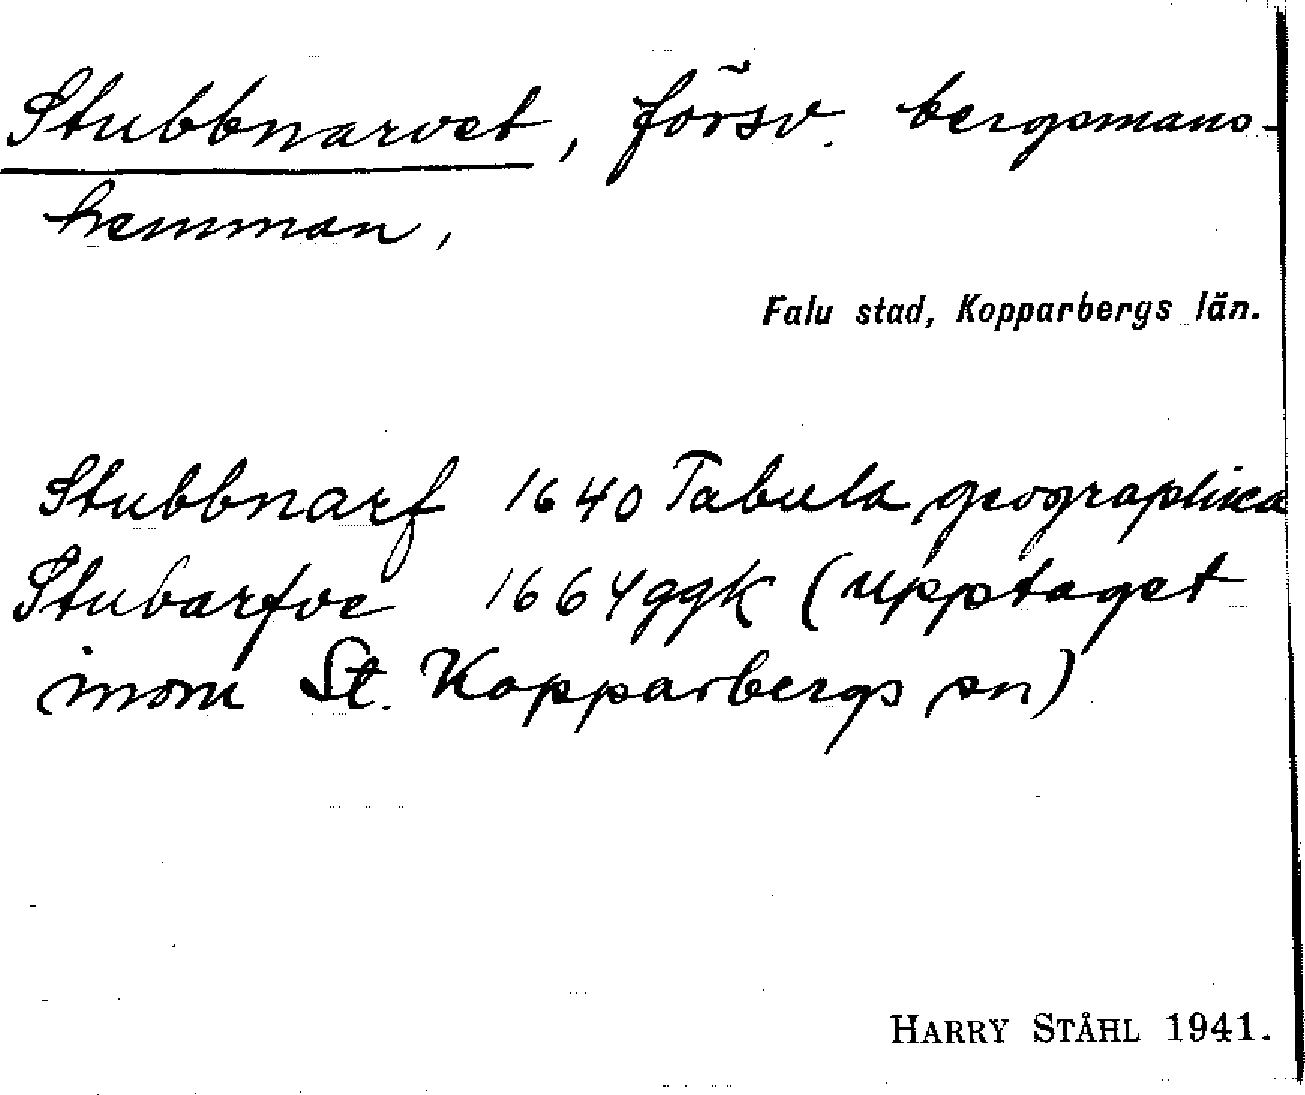 Stubbnarvet, försv. bergsmans-
hemman,
Falu stad, Kopparbergs län.
Stubbnarf 1640 Tabula geographica
Stubarfve 1664 ggk (upptaget
inom St. Kopparbergs sn)
HARRY STÅHL 1941.